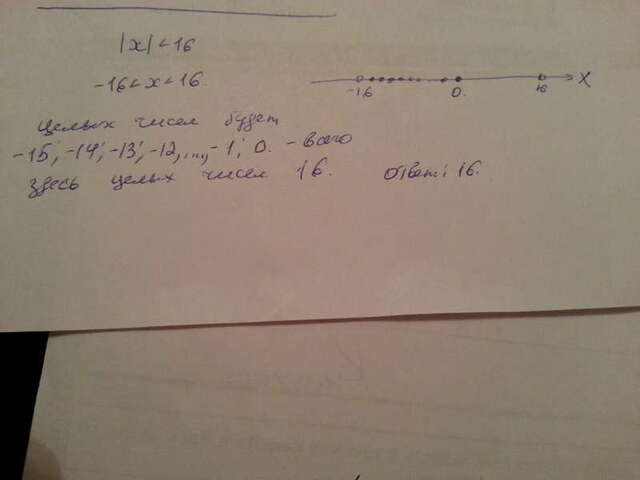 |x|<16
-16<x<16.
-16 0. 16 X
целых чисел будет
-15; -14; -13; -12,..., -1; 0. - всего
здесь целых чисел 16. ответ: 16.